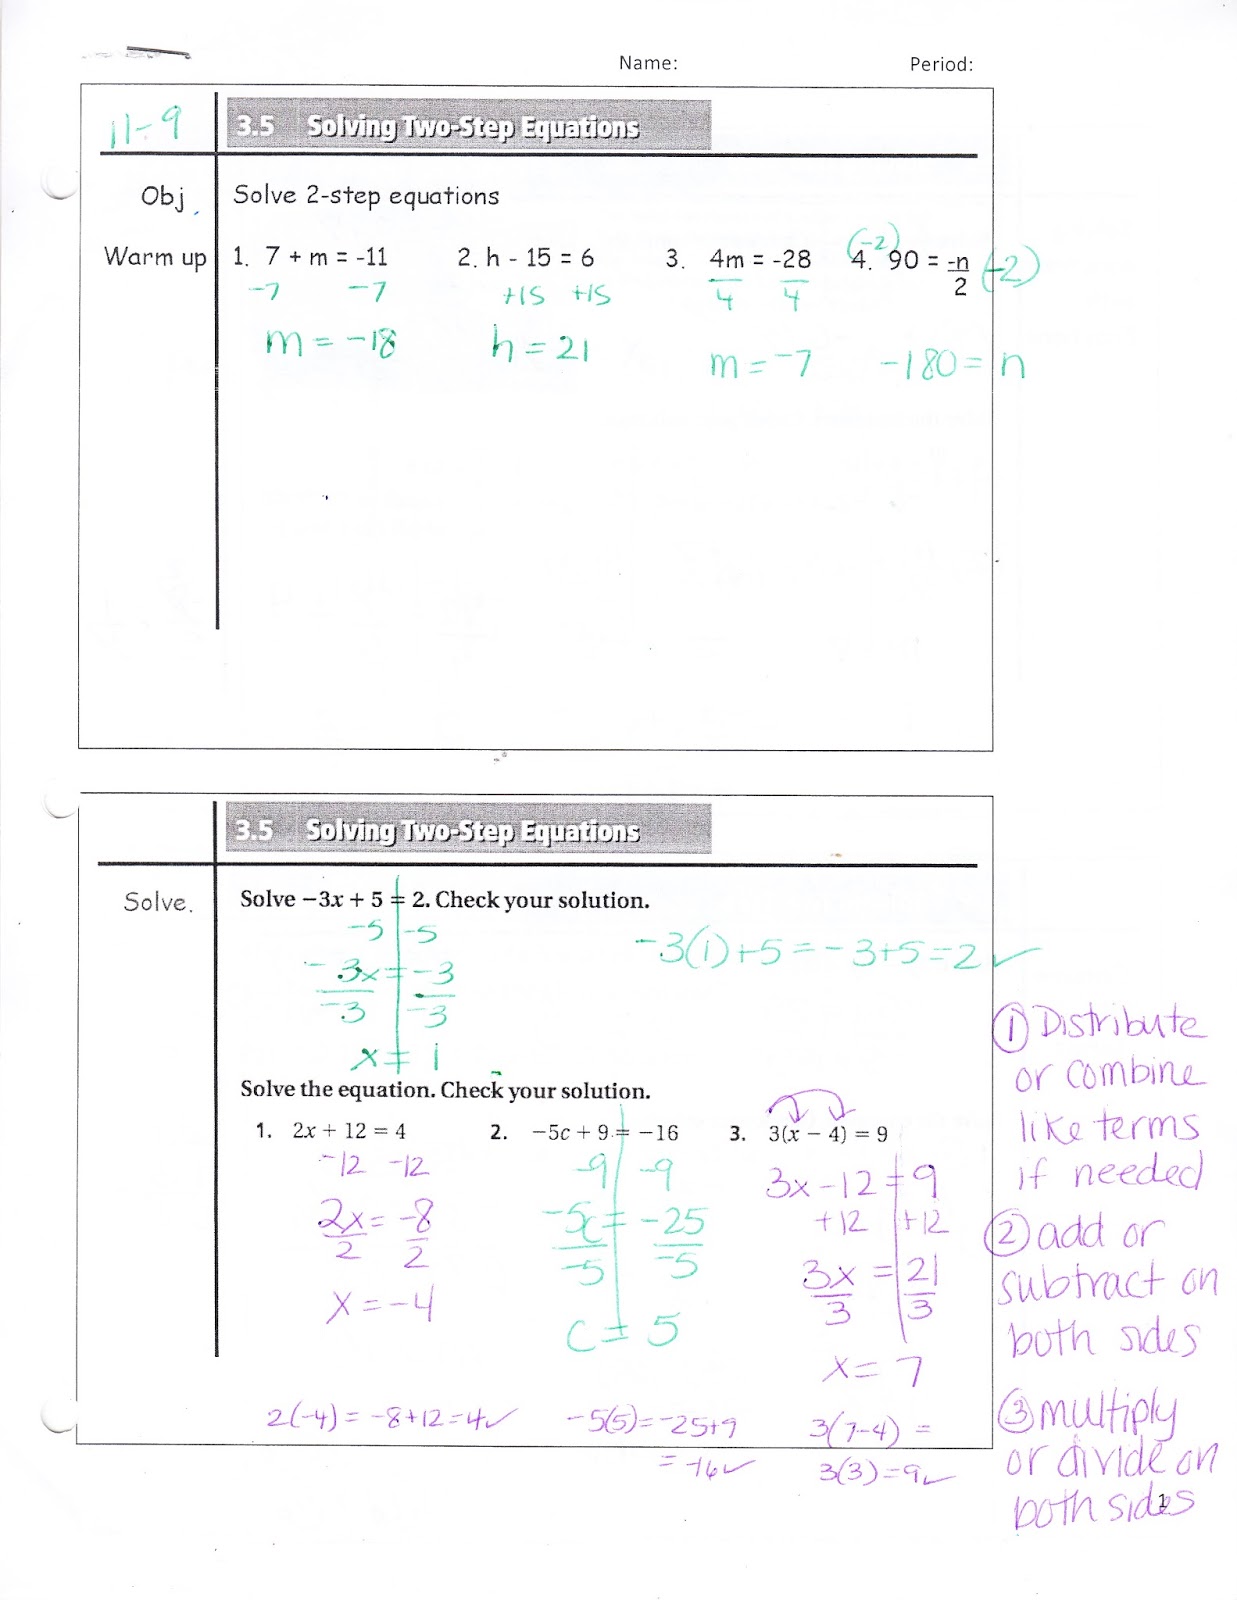 Name: Period:
11-9 3.5 Solving Two-Step Equations
Obj Solve 2-step equations
Warm up 1. 7 + m = -11 2. h - 15 = 6 3. 4m = -28 (-2) 4. 90 = -n/2 (-2)
-7 -7 +15 +15 4 4
m = -18 h = 21 m = -7 -180 = n
3.5 Solving Two-Step Equations
Solve. Solve −3x + 5 = 2. Check your solution.
-5 -5
-3(1)+5 = -3+5=2 ✓
-3x = -3
-3 -3
x = 1
Solve the equation. Check your solution.
1. 2x + 12 = 4 2. −5c + 9 = −16 3. 3(x − 4) = 9
-12 -12 -9 -9 3x-12 = 9
+12 +12
2x = -8 -5c = -25 3x = 21
2 2 -5 -5 3 3
x = -4 c = 5 x = 7
2(-4) = -8+12=4✓ -5(5)= -25+9 3(7-4) =
= -16✓ 3(3)=9✓
① Distribute
or combine
like terms
if needed
② add or
subtract on
both sides
③ multiply
or divide on
both sides
1